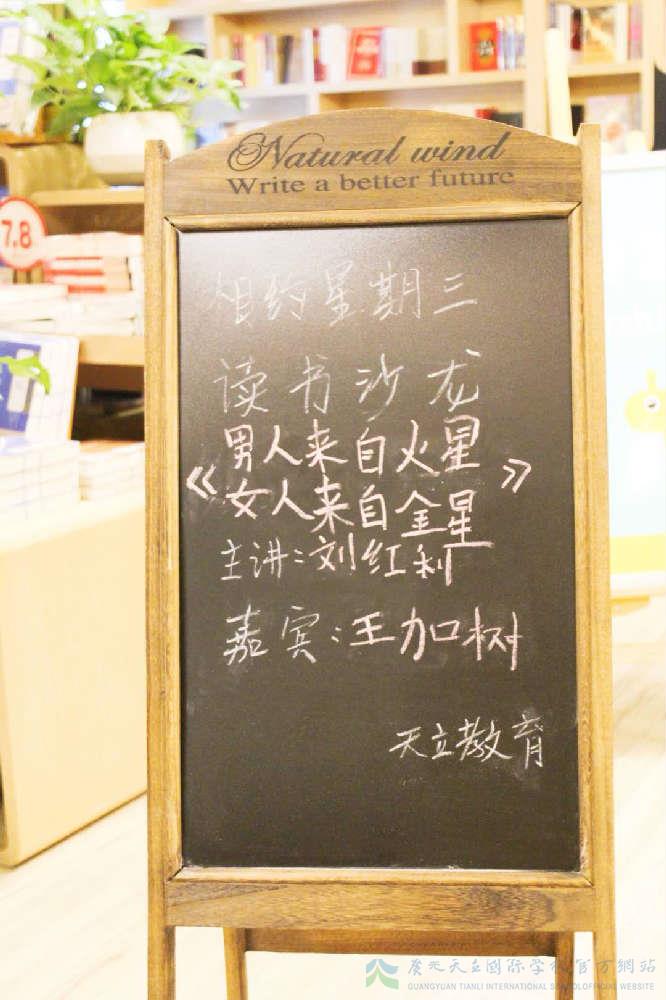 Natural wind
Write a better future
7.8
相约星期三
读书沙龙
《男人来自火星
女人来自金星》
主讲:刘红利
嘉宾:王加树
天立教育
广元天立国际学校官方網站
GUANGYUAN TIANLI INTERNATIONAL SCHOOLOFFICIAL WEBSITE